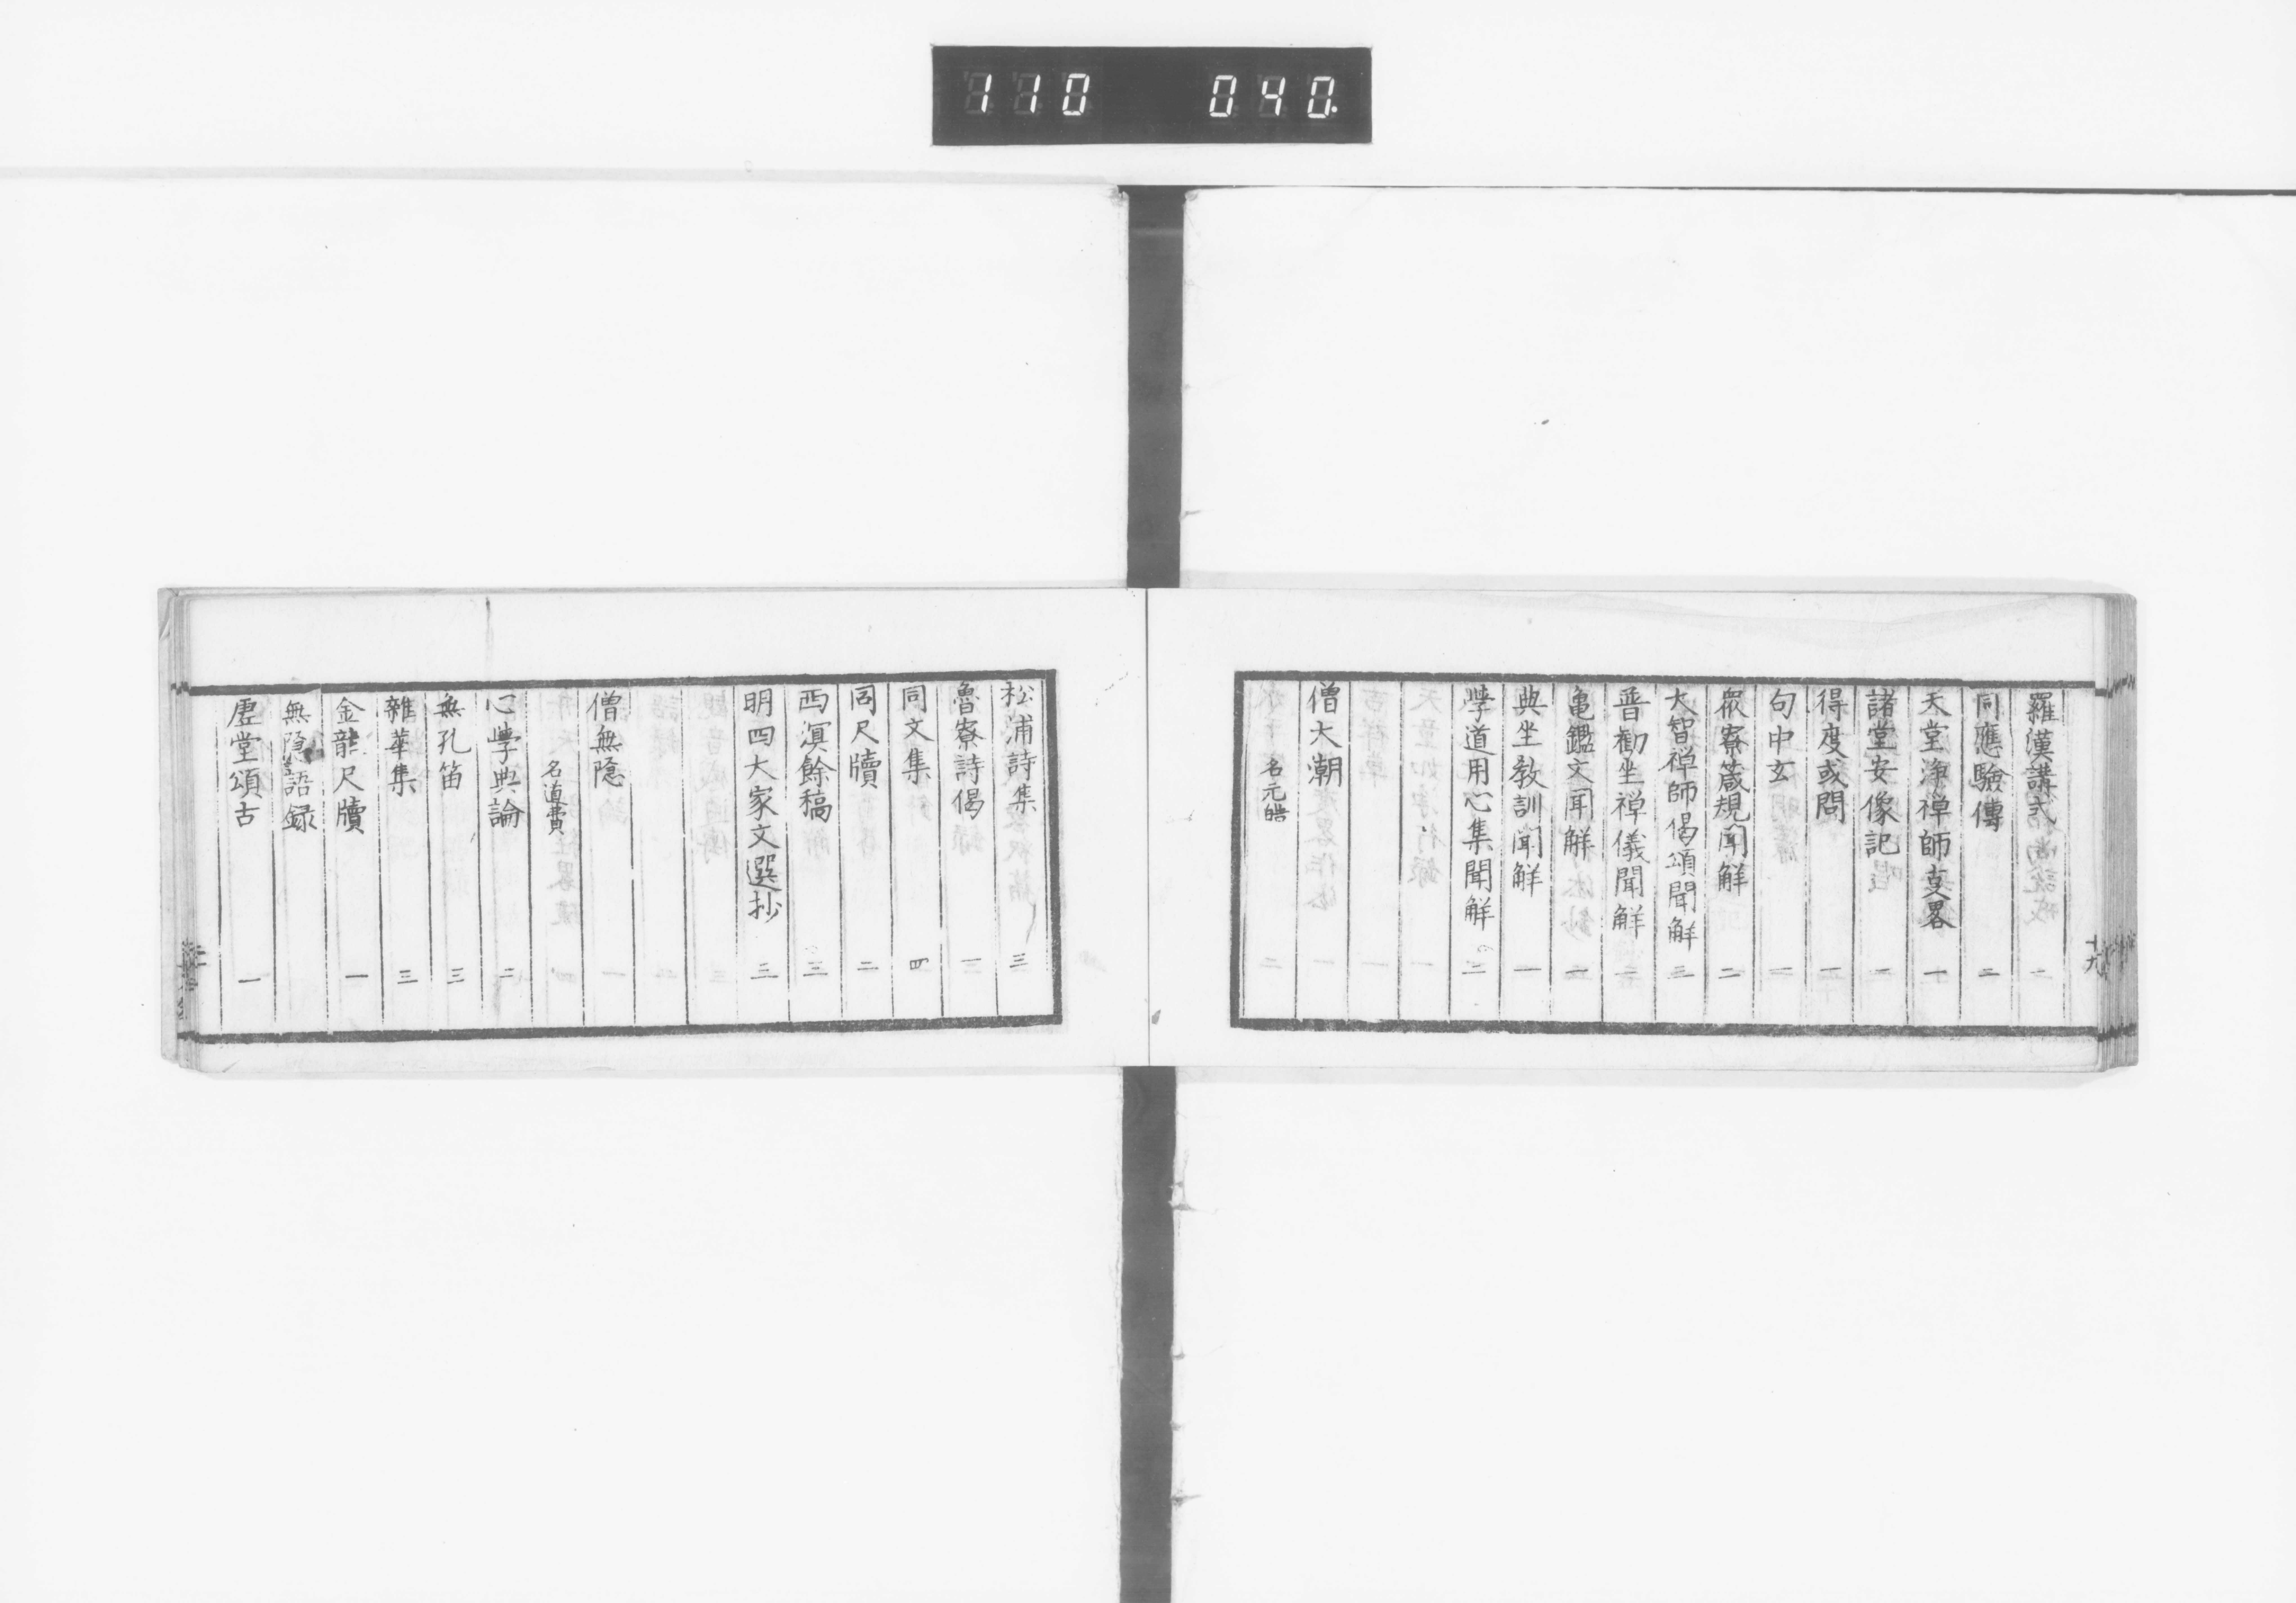 110 040.
羅漢講式 一
同應驗傳 二
天堂淨禅師叓畧 一
諸堂安像記 一
得度或問 一
句中玄 一
眾寮箴規聞解 二
大智禅師偈頌聞解 三
普勸坐禅儀聞解 一
亀鑑文聞解 一
典坐教訓聞解 一
學道用心集聞解 二
僧大潮
名元皓
十九
松浦詩集 三
魯寮詩偈 三
同文集 四
同尺牘 二
西溟餘稿 三
明四大家文選抄 三
僧無隠
名道費
心學典論 二
無孔笛 三
雜華集 三
金龍尺牘 一
無隠語録
虗堂頌古 一